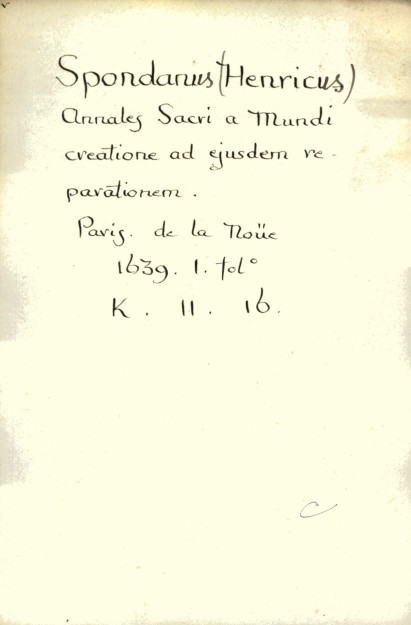 Spondanus (Henricus)
Annales Sacri a Mundi
creatione ad ejusdem re-
parationem.
Paris. de la Noüe
1639. 1. fol°
K. 11. 16.
C